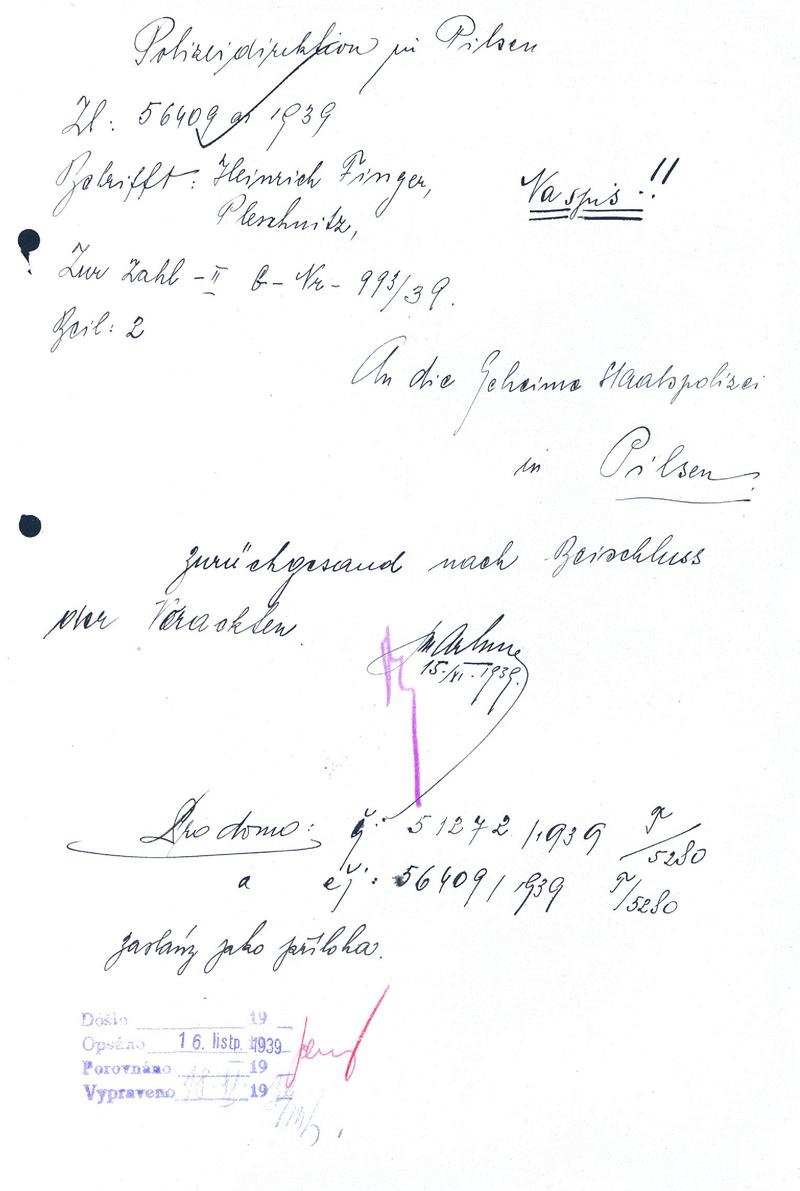 Polizeidirektion in Pilsen
Zl. 56409 ai 1939
Betrifft: Heinrich Finger,
Pleschnitz,
Na spis!!
Zur Zahl - II B - Nr - 993/39.
Beil: 2
An die Geheime Staatspolizei
in Pilsen.
zurückgesand nach Beischluss
der Vorackten.
15./XI. 1939.
Pro domo: čj: 51272/1939 T/5280
a čj: 56409/1939 T/5280
zaslány jako příloha.
Došlo 19
Opsáno 16. listp. 1939
Porovnáno 19
Vypraveno 19